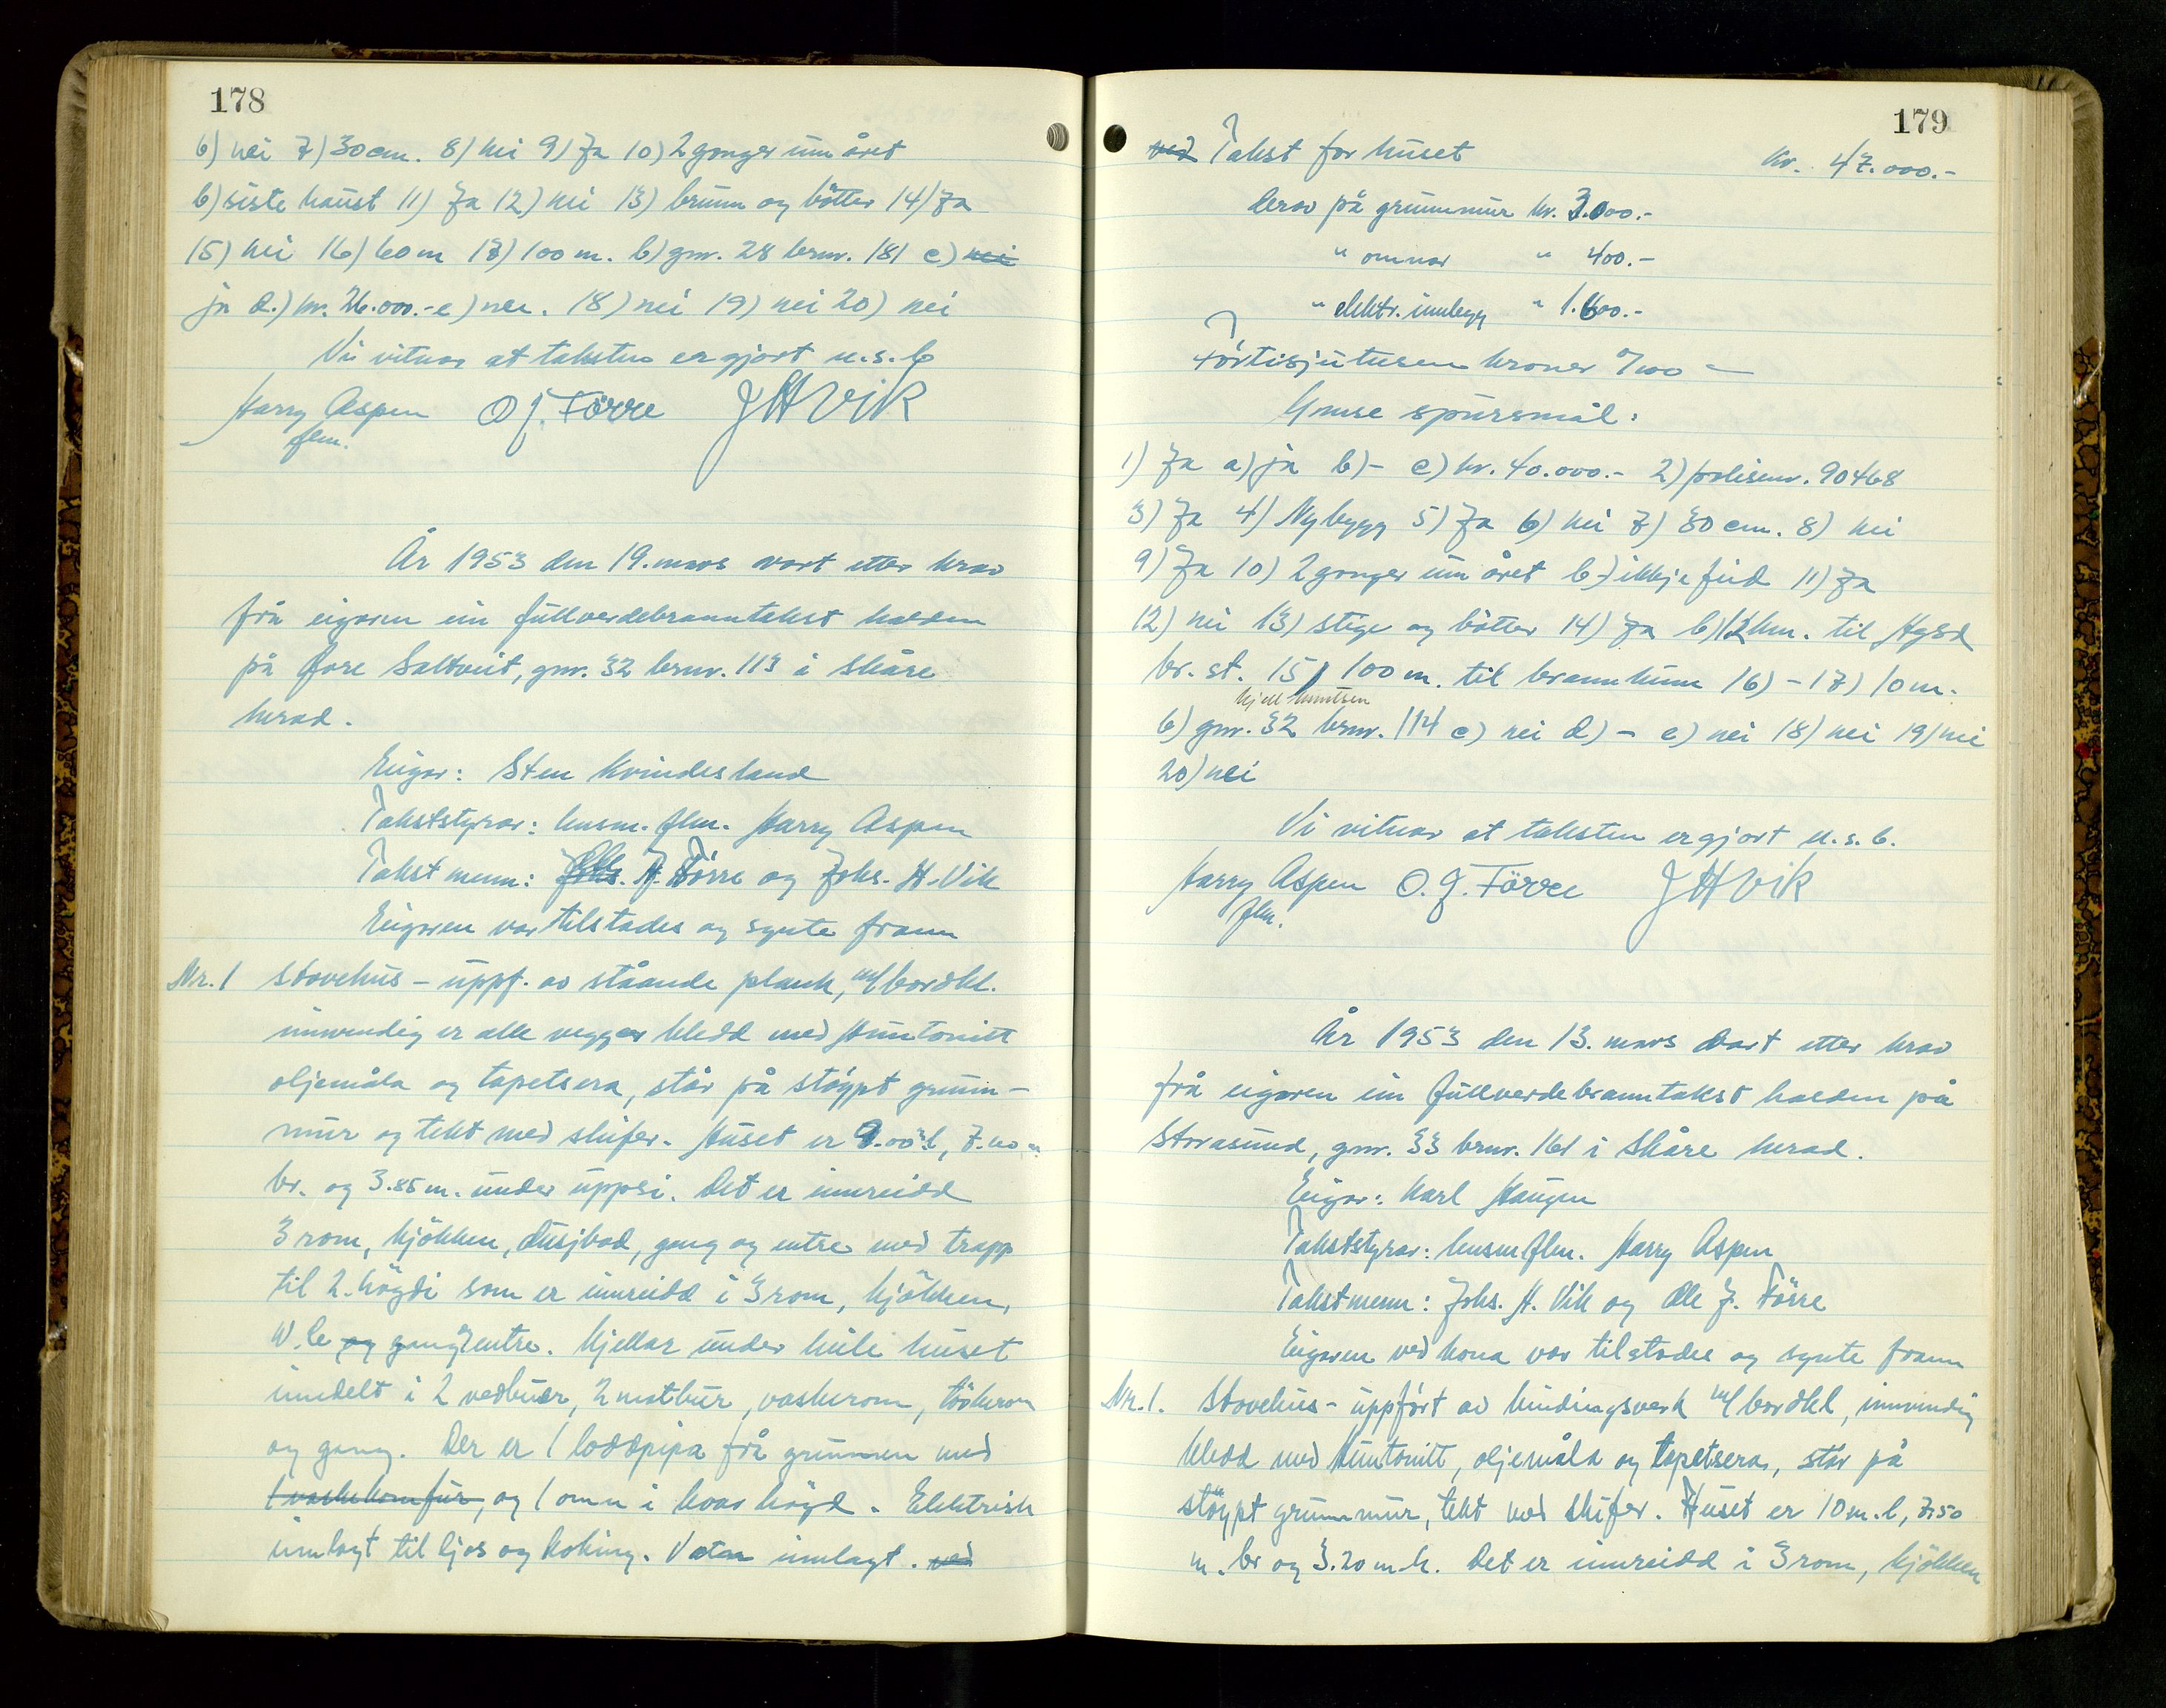 178
6) nei 7) 30 cm. 8) nei 9) Ja 10) 2 gonger um året
b) siste haust 11) Ja 12) nei 13) brunn og bøtter 14) Ja
15) nei 16) 60 m 17) 100 m. b) gnr. 28 brnr. 181 c) nei
ja d.) kr. 26.000.- e) nei. 18) nei 19) nei 20) nei
Vi vitnar at taksten er gjort u.s.b
Harry Aspen O J. Førre J H Vik
flm.
År 1953 den 19. mars vart etter krav
frå eigaren ein fullverdebranntakst halden
på Øvre Saltveit, gnr. 32 brnr. 113 i Skåre
herad.
Eigar: Sten Kvindesland
Takststyrar: lensm. flm. Harry Aspen
Takstmenn: J. Førre og Johs. H. Vik
Eigaren var tilstades og synte fram
Nr. 1 Stovehus - uppf. av ståande plank, m/bordkl.
innvendig er alle vegger kledd med Huntonitt
oljemåla og tapetsera, står på støypt grunn-
mur og tekt med skifer. Huset er 9.00 m l, 7.00 m
br. og 3.85 m. under uppsi. Det er innreidd
3 rom, kjøkken, dusjbad, gang og entre med trapp
til 2. høgdi som er innreidd i 3 rom, kjøkken,
W.c og gang entre. Kjellar under heile huset
inndelt i 2 vedbuer, 2 matbur, vaskerom, tørkerom
og gang. Der er 1 loddpipa frå grunnen med
1 vaskekomfur, og 1 omn i kvar høgd. Elektrisk
innlagt til ljos og koking. Vatn innlagt. ved
179
ved Takst for huset kr. 47.000.-
Derav på grunnmur kr. 3.000.-
" omnar " 400.-
" elektr. innlegg " 1.600.-
Førtisjutusen kroner 0/100 -
Ymse spursmål:
1) Ja a) ja b) - c) kr. 40.000.- 2) polisenr. 90468
3) Ja 4) Nybygg 5) Ja 6) nei 7) 30 cm. 8) nei
9) Ja 10) 2 gonger um året b) ikkje feid 11) Ja
12) nei 13) stige og bøtter 14) Ja b) 12 km. til Hgsd
br. st. 15) 100 m. til brannkum 16) - 17) 10 m.
Kjell Knutsen
b) gnr. 32 brnr. 114 c) nei d) - e) nei 18) nei 19) nei
20) nei
Vi vitnar at taksten er gjort u.s.b.
Harry Aspen O. J. Førre J H Vik
flm.
År 1953 den 13. mars vart etter krav
frå eigaren ein fullverdebranntakst halden på
Storasund, gnr. 33 brnr. 161 i Skåre herad.
Eigar: Karl Haugen
Takststyrar: lensm flm. Harry Aspen
Takstmenn: Johs. H. Vik og Ole J. Førre
Eigaren ved kona var tilstades og synte fram
Nr. 1. Stovehus - uppført av bindingsverk m/bordkl, innvendig
kledd med Huntonitt, oljemåla og tapetsera, står på
støypt grunnmur, tekt med skifer. Huset er 10 m. l, 7.50
m. br og 3.20 m. h. Det er innreidd i 3 rom, kjøkken